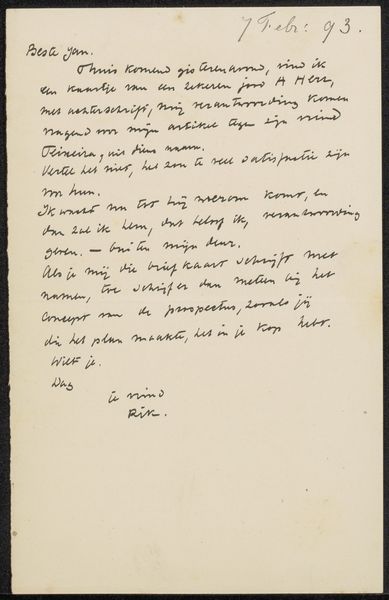 7 Febr: 93.
Beste Jan.
Thuis komend gisterenavond, vind ik
een kaartje van een zekeren jood A Herz,
met achterschrift, mij verantwoording komen
vragend voor mijn artikel tegen zijn vriend
Teixeira, uit diens naam.
Vertel het niet, het zou te veel satisfactie zijn
voor hun.
Ik wacht nu tot hij weerom komt, en
dan zal ik hem, dat beloof ik, verantwoording
geven. — buiten mijn deur.
Als je mij die briefkaart schrijft met
namen, schrijf er dan meteen bij het
concept van de prospectus, zooals jij
die het plan maakte, het in je kop hebt.
Wilt je.
Dag
je vriend
Rik.